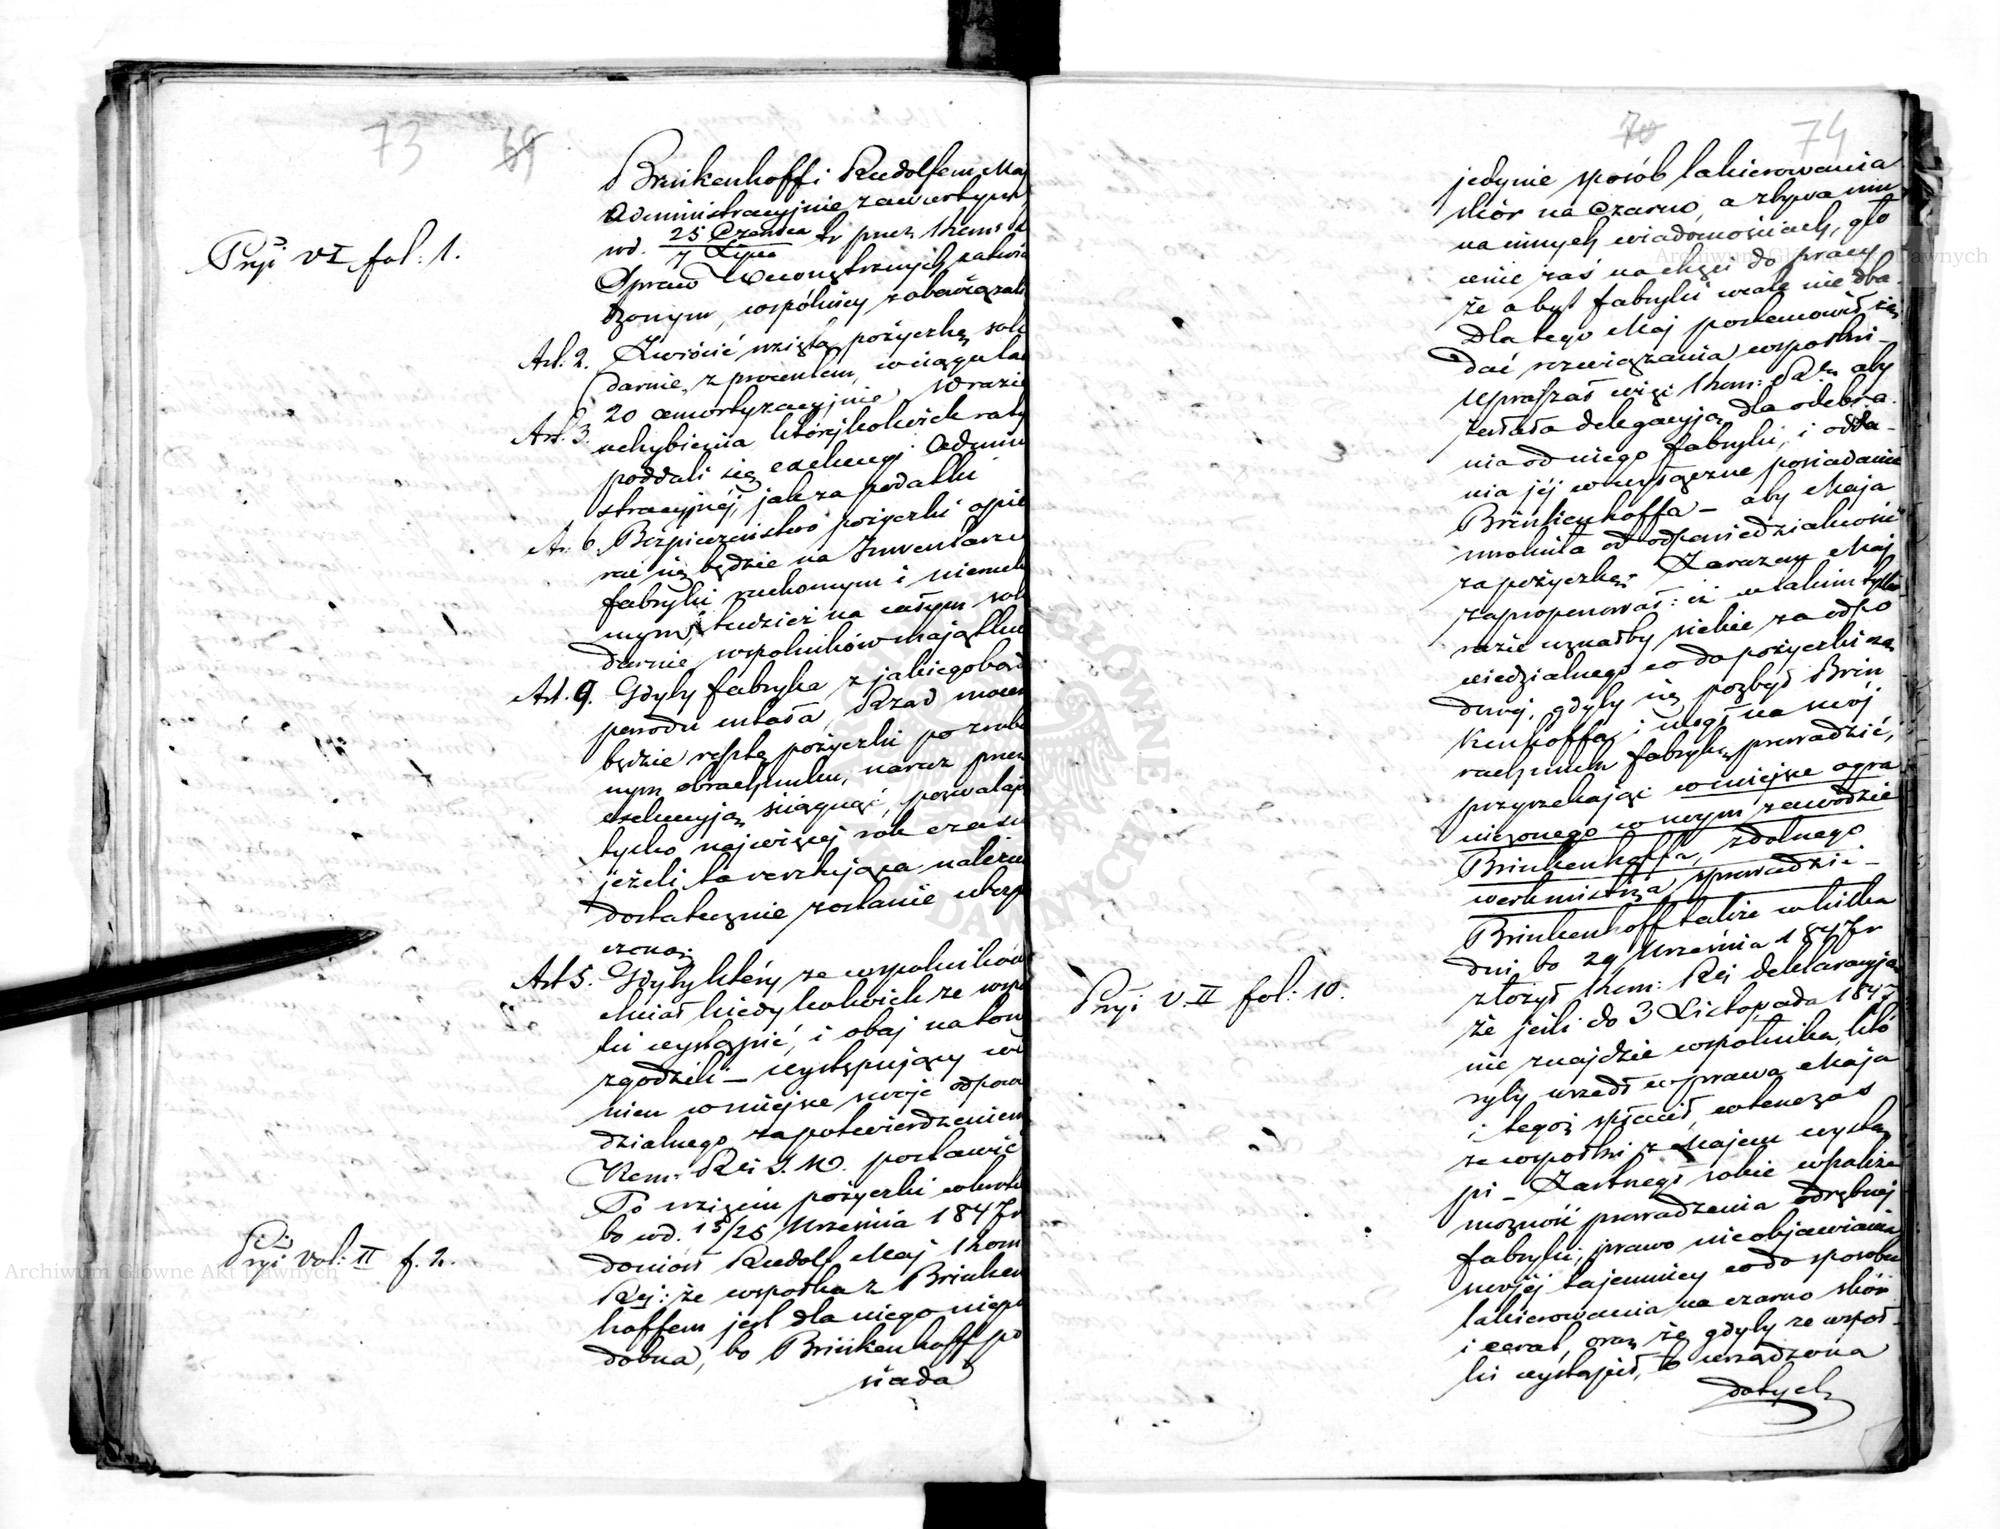 73 69
Brinkenhoff i Rudolfem Maj
Administracyjnie zawartym,
Pryj V I fol: 1.
wd. 25 Czerwca / 7 Lipca br przez Kom: R
Spraw Wewnętrznych zatwier
dzonym, wspólnicy zobowiązali
Art: 2. Zwrócić wziętą pożyczkę soli
darnie, z procentem, w ciągu lat
20 amortyzacyjnie. W razie
Art. 3. uchybienia którejkolwiek raty
poddali się exekucyi Admini
stracyjnéj, jak za podatki
Art. 6. Bezpieczeństwo pożyczki opie
rać się będzie na Inwentarzu
fabryki ruchomym i nieruch
mym, tudzież na całym soli
darnie wspólników majątku
Art. 9. Gdyby fabryka z jakiegobądź
powodu ustała, Rząd mocen
będzie resztę pożyczki po zrobio
nym obrachunku, naraz przez
exekucyją ściągnąć, pozwalając
tylko najwięcéj rok czasu
jeżeli ta resztująca należn
dostatecznie zostanie ubezp
czoną.
Art 5. Gdyby który ze wspólników
chciał kiedykolwiek ze współ
ki wystąpić, i obaj na to się
zgodzili — występujący wi
nien w miejsce swoje odpowie
dzialnego za potwierdzeniem
Kom: Rej S. W. postawić
Po wzięciu pożyczki wkrótce
bo wd. 13/25 Września 1847 r
doniósł Rudolf Maj Kom:
Pryj vol: II f. 2.
Rej: że wspólka z Brinken
hoffem jest dla niego niepo
dobna, bo Brinkenhoff po
siada
70 74
jedynie sposób lakierowania
skór na czarno, a zbywa mu
na innych wiadomościach, głó
wnie zaś na chęci do pracy
że o byt fabryki wcale nie dba
Dla tego Maj postanowił żą
dać rozwiązania wspólki —
upraszał więc Kom: Rz. aby
zesłała delegacyją dla odebra
nia od niego fabryki, i odda-
nia jéj w wyłączne posiadanie
Brinkenhoffa — aby Maja
uwolniła od odpowiedzialności
za pożyczkę. Zarazem Maj
zaproponował: iż w takim tylko
razie uznałby siebie za odpo
wiedzialnego co do pożyczki na
dano, gdyby się pozbył Brin
kenhoffa, i mógł na swój
rachunek fabrykę prowadzić,
przyrzekając w miejsce ogra
niczonego w swym zawodzie
Brinkenhoffa, zdolnego
werkmistrza, sprowadzić —
Brinkenhoff także w kilka
dni bo 29 Września 1847 r
Pryj V. II fol: 10.
złożył Kom: Rej deklaracyją
że jeśli do 3 Listopada 1847
nie znajdzie wspólnika, któ
ryby wszedł w prawa Maja
i tegoż spłacił, wtenczas
ze wspólki z Majem wystą
pi — Zastrzegł sobie wszakże
możność prowadzenia odrębnéj
fabryki; prawo nieobjawiania
swojéj tajemnicy co do sposobu
lakierowania na czarno skór
i cerat, oraz że gdyby ze wspól-
ki wystąpił, to urządzona
dotych